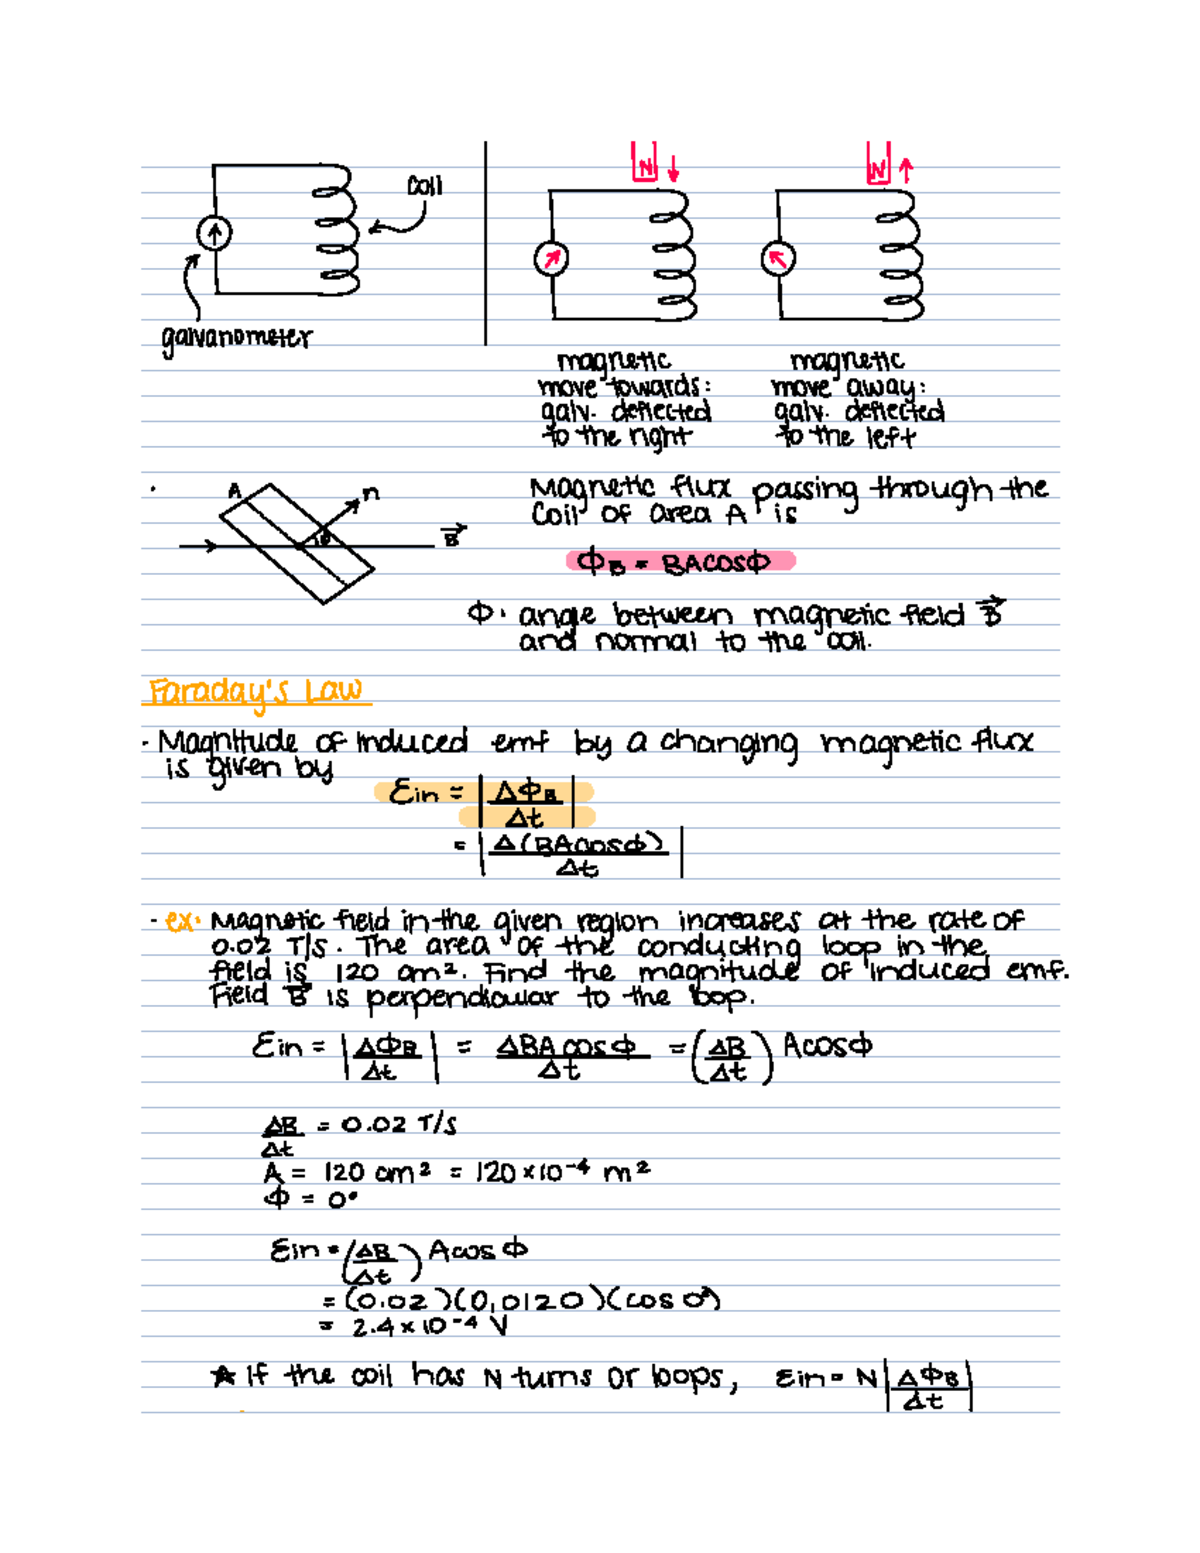 coil
galvanometer
N
N
magnetic
move towards:
galv. deflected
to the right
magnetic
move away:
galv. deflected
to the left
A
n
ϕ
B⃗
Magnetic flux passing through the
coil of area A is
Φ_B = BAcosϕ
ϕ: angle between magnetic field B⃗
and normal to the coil.
Faraday's Law
· Magnitude of induced emf by a changing magnetic flux
is given by
Ɛin = |ΔΦ_B / Δt|
= |Δ(BAcosϕ) / Δt|
- ex: Magnetic field in the given region increases at the rate of
0.02 T/s. The area of the conducting loop in the
field is 120 cm². Find the magnitude of induced emf.
Field B⃗ is perpendicular to the loop.
Ɛin = |ΔΦ_B / Δt| = ΔBAcosϕ / Δt = (ΔB / Δt) Acosϕ
ΔB / Δt = 0.02 T/s
A = 120 cm² = 120×10⁻⁴ m²
ϕ = 0°
Ɛin = (ΔB / Δt) Acosϕ
= (0.02)(0.0120)(cos0°)
= 2.4×10⁻⁴ V
★ If the coil has N turns or loops, Ɛin = N|ΔΦ_B / Δt|